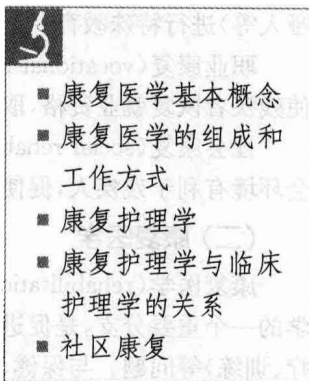 ■ 康复医学基本概念
■ 康复医学的组成和
工作方式
■ 康复护理学
■ 康复护理学与临床
护理学的关系
■ 社区康复